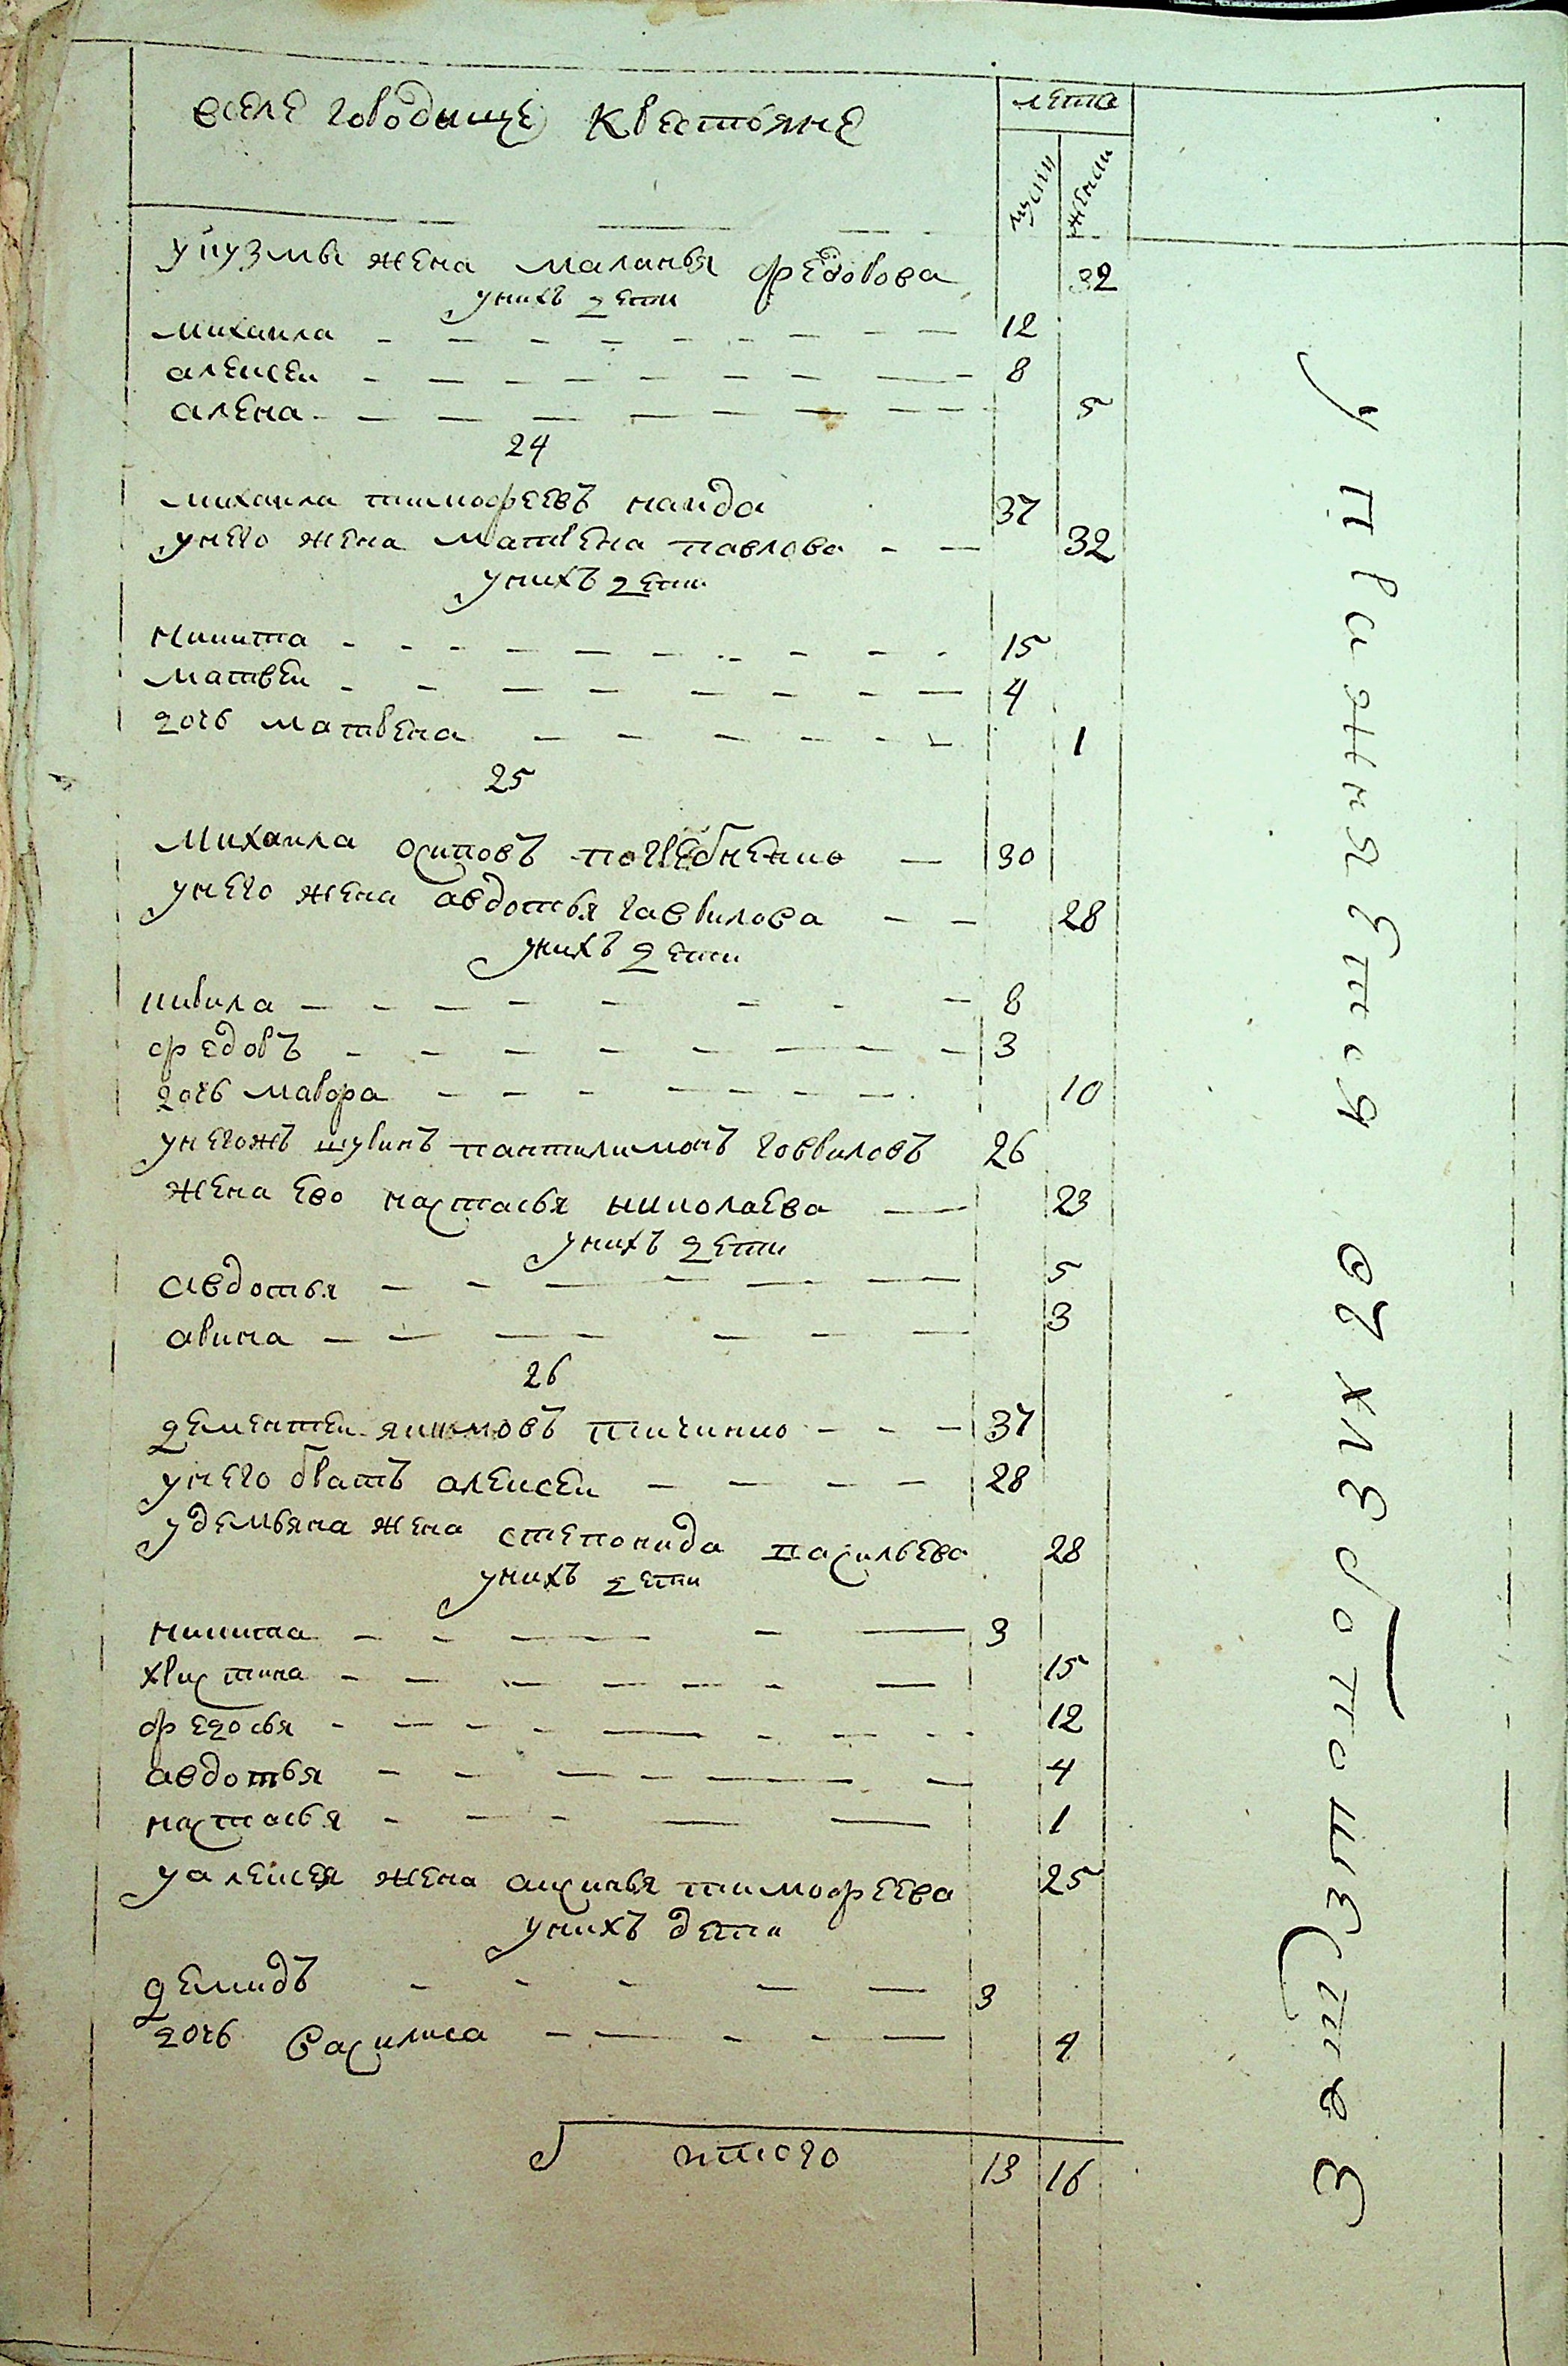 вселе городище крестьяне
лета
муски
женски
укузмы жена маланья федорова 32
унихъ дети
михаила 12
алексеи 8
алена 5
24
михаила тимофеевъ каида 37
унего жена матрена павлова 32
унихъ дети
никита 15
матвеи 4
дочь матрена 1
25
михаила осиповъ погребненко 30
унего жена авдотья гаврилова 28
унихъ дети
кирила 8
федоръ 3
дочь мавра 10
унегожъ шуринъ пантилимонъ гавриловъ 26
жена ево настасья николаева 23
унихъ дети
авдотья 5
арина 3
26
дементеи якимовъ пичинко 37
унего братъ алексеи 28
удемьяна жена степонида васильева 28
унихъ дети
никита 3
христина 15
федосья 12
авдотья 4
настасья 1
уалексея жена аксинья тимофеева 25
унихъ дети
демидъ 3
дочь василиса 4
итого 13 16